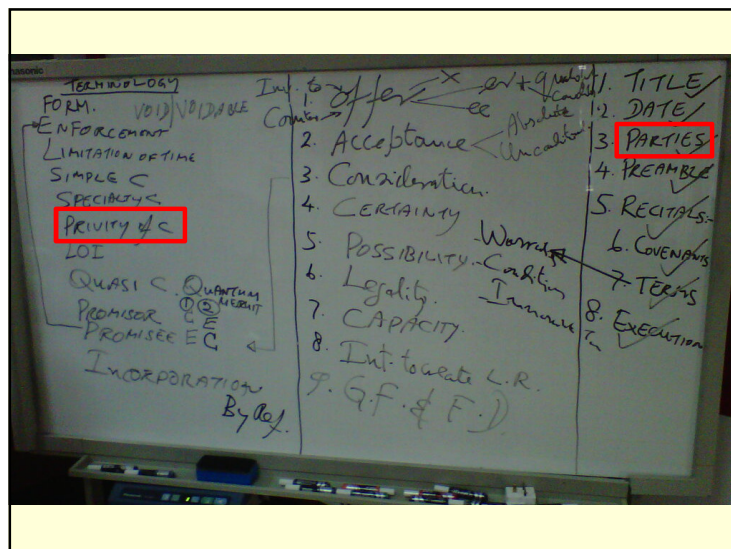 Panasonic
TERMINOLOGY
FORM. VOID/VOIDABLE
ENFORCEMENT
LIMITATION OF TIME
SIMPLE C
SPECIALTY C
PRIVITY of C
LOI
QUASI C. QUANTUM
MERUIT
PROMISOR C 2
E
PROMISEE E C
INCORPORATION
By Ref.
Inv. to
1. Offer X er +
Counter ee
2. Acceptance Absolute
3. Consideration.
4. CERTAINTY
5. POSSIBILITY.
6. Legality.
7. CAPACITY.
8. Int. to create L.R.
9. G.F. & F.D
Warranty
Condition
1. TITLE
2. DATE
3. PARTIES
4. PREAMBLE
5. RECITALS:-
6. COVENANTS
7. TERMS
8. EXECUTION